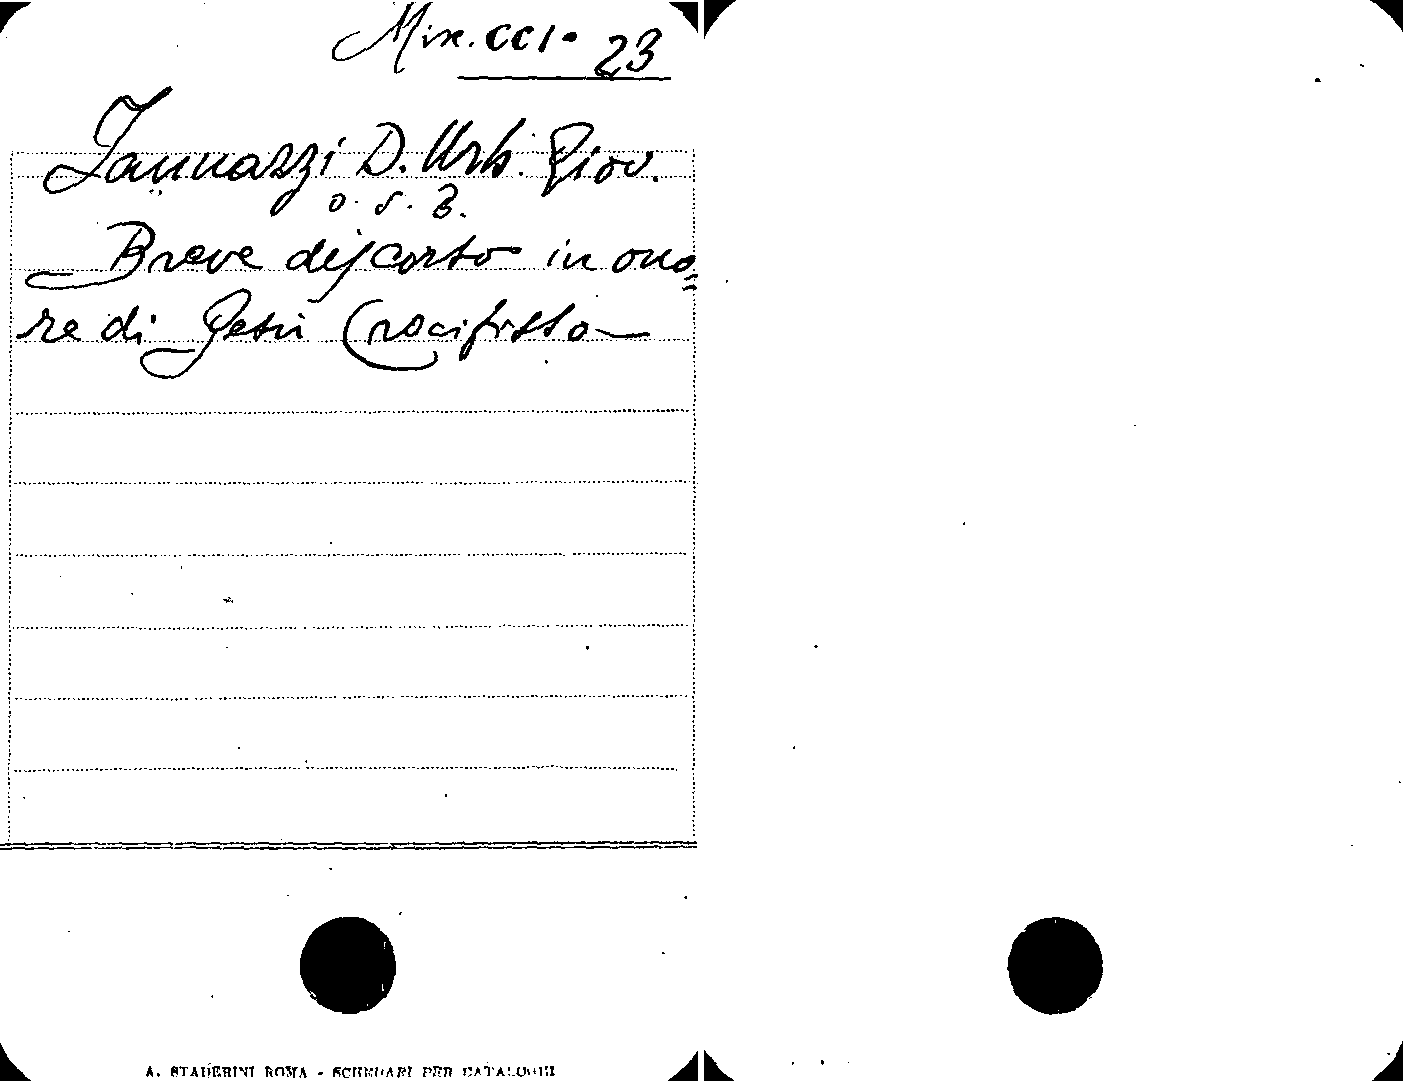 Misc. CCI - 23
Iannuzzi D. Urb. Giov.
O. S. B.
Breve discorso in ono=
re di Gesù Crocifisso
A. STADERINI ROMA - SCHEDARI PER CATALOGHI